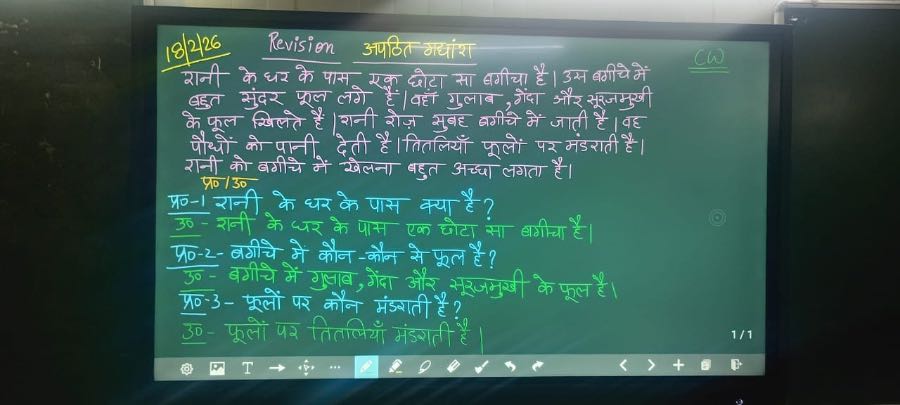 18/2/26 Revision अपठित गद्यांश CW
रानी के घर के पास एक छोटा सा बगीचा है। उस बगीचे में
बहुत सुंदर फूल लगे हैं। वहाँ गुलाब, गेंदा और सूरजमुखी
के फूल खिलते है। रानी रोज़ सुबह बगीचे में जाती है। वह
पौधों को पानी देती है। तितलियाँ फूलों पर मंडराती है।
रानी को बगीचे में खेलना बहुत अच्छा लगता है।
प्र०/उ०
प्र०-1 रानी के घर के पास क्या है?
उ०- रानी के घर के पास एक छोटा सा बगीचा है।
प्र०-2- बगीचे में कौन-कौन से फूल है?
उ०- बगीचे में गुलाब, गेंदा और सूरजमुखी के फूल है।
प्र०-3- फूलों पर कौन मंडराती है?
उ०- फूलों पर तितलियाँ मंडराती है।
1/1
T